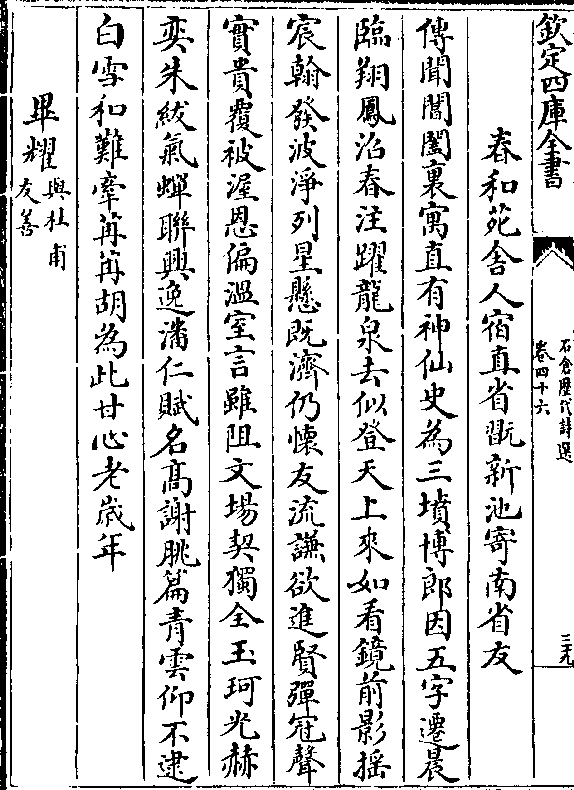 欽定四庫全書
石倉歷代詩選
卷四十六
三九
春和苑舍人宿直省翫新池寄南省友
傳聞閶闔裏寓直有神仙史為三墳博郎因五字遷晨
臨翔鳳沼春注躍龍泉去似登天上來如看鏡前影搖
宸翰發波淨列星懸既濟仍懷友流謙欲進賢彈冠聲
實貴覆被渥恩偏溫室言雖阻文場契獨全玉珂光赫
奕朱紱氣蟬聯興逸潘仁賦名髙謝朓篇青雲仰不逮
白雪和難牽苒苒胡為此甘心老歳年
畢耀與杜甫友善